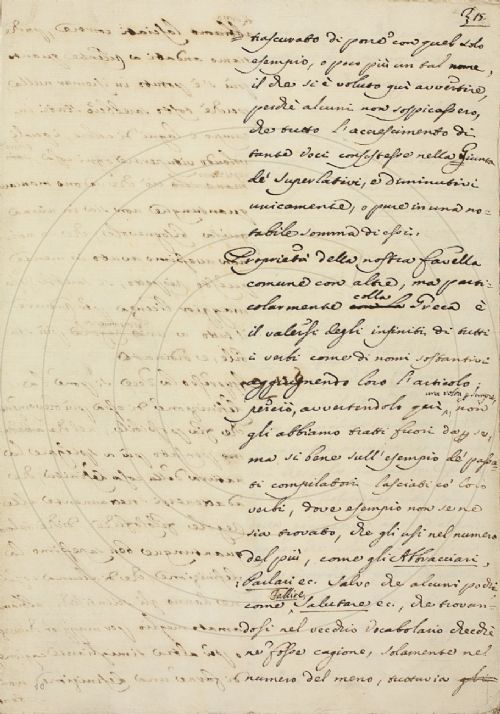 315
trascurato di porre con quel solo
esempio, o poco più un tal nome,
il che si è voluto qui avvertire,
perchè alcuni non sospicassero,
che tutto l'accrescimento di
tante voci consistesse nella Giunta
de' Superlativi, e diminutivi
unicamente, o pure in una no-
tabile somma di essi.
Proprietà della nostra favella
comune con altre, ma parti-
colarmente con la colla Greca è
il valersi degli infiniti di tutti
i verbi come di nomi sostantivi
aggiugnendo loro l'articolo;
perciò, avvertendolo qui una volta p sempre, non
gli abbiamo tratti fuori da p se,
ma si bene sull'esempio de' passa-
ti compilatori lasciati co' loro
verbi, dove esempio non se ne
sia trovato, che gli usi nel numero
del più, come gli Abbracciari,
Parlari ec. Salvo che alcuni pochi
come, Salutare ec., che trovan-
dosi nel vecchio Vocabolario checchè
ne fosse cagione, solamente nel
numero del meno, tuttavia gli